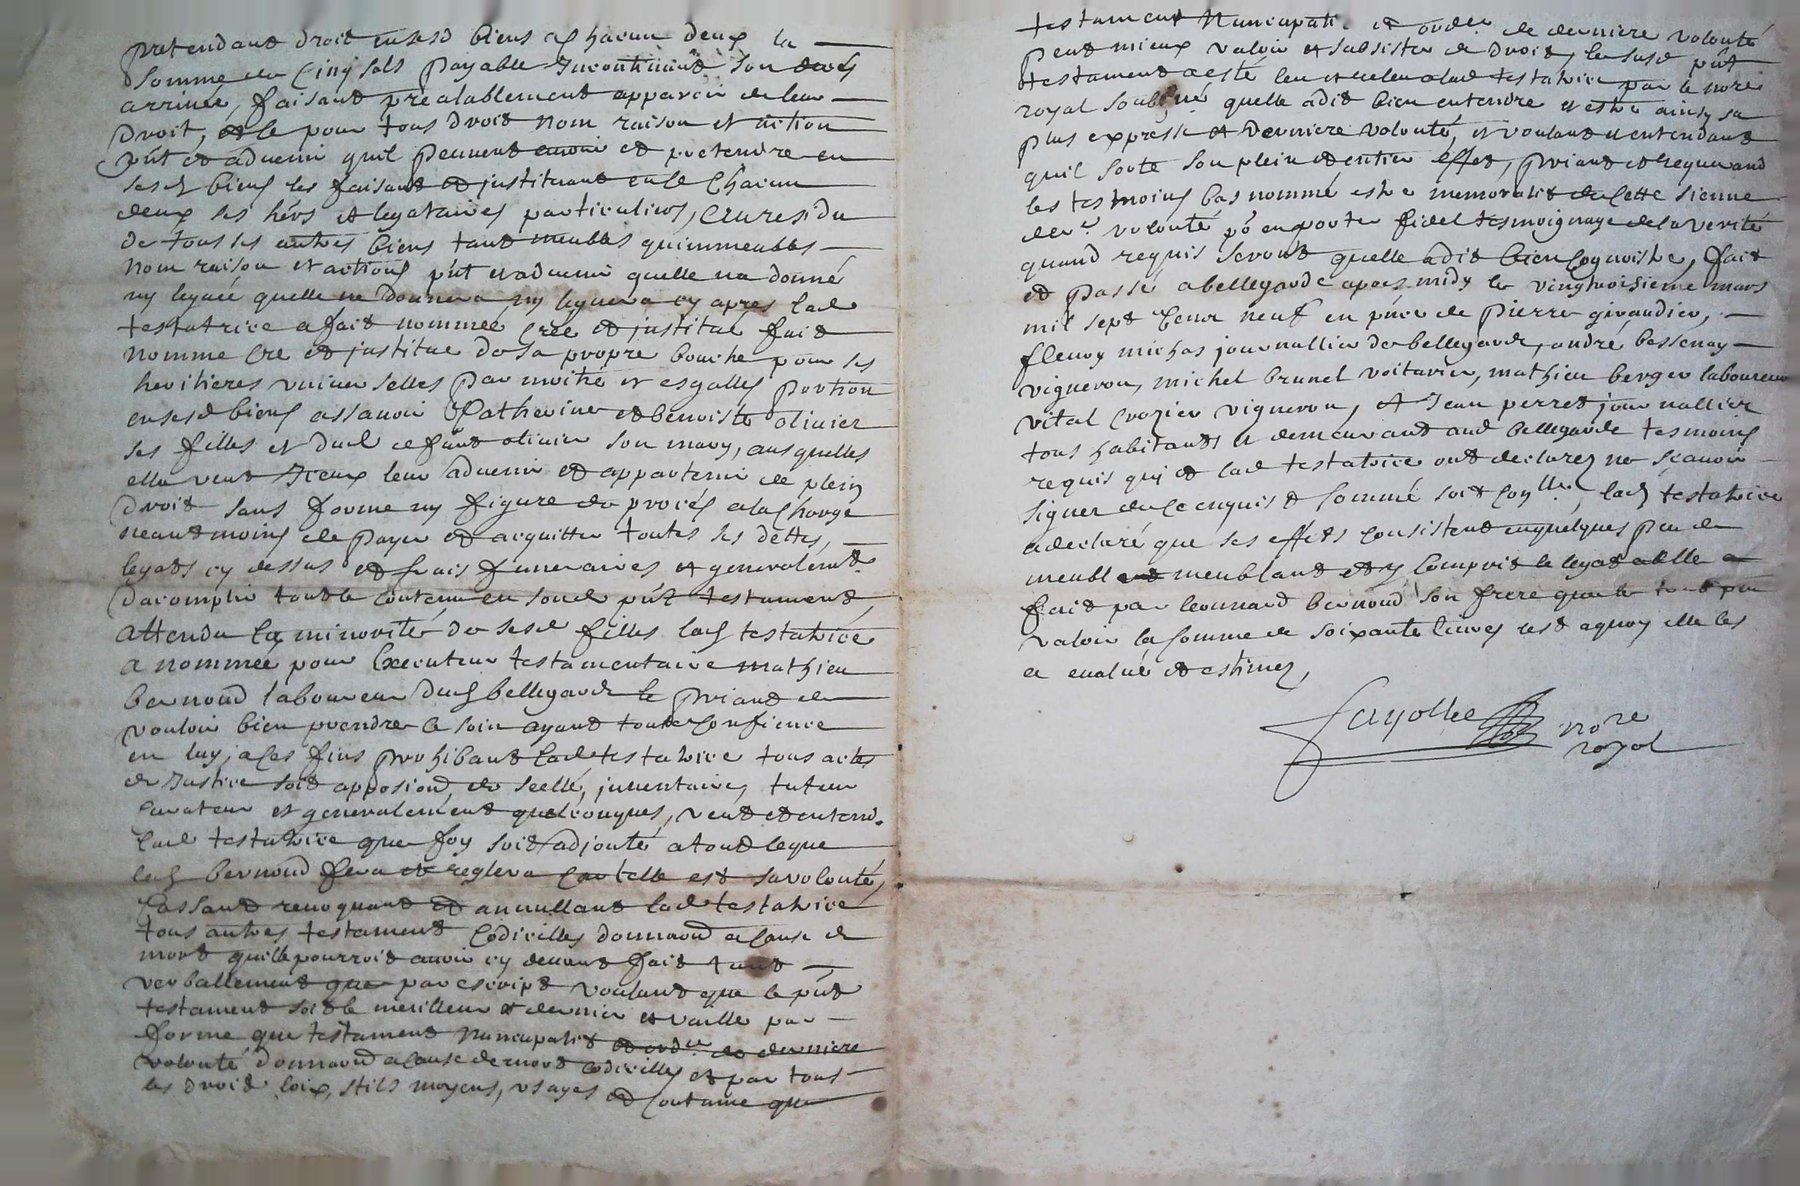 pretendant droit en sesd biens a chacun deux la
somme de Cinq sols payable Incontinant son deces
arrivée, faisant prealablement apparoir de leur
Droit, & ce pour tous droit nom raison et action
pnt et advenir quil peuvent avoir et pretendre en
sesd biens les faisant et justituant en ce Chacun
deux ses hers et legataires particuliers, Et au residu
de tous ses autres biens tant meubles quimmeubles
Nom raison et actions pnt et advenir quelle na donné
ny legué quelle ne Donnera ny leguera cy apres lad
testatrice a fait nommée Créé et justitué fait
nomme Cre et justitue de sa propre bouche pour ses
heritieres universelles par moitié et esgalles portion
en sesd biens assavoir Catherine et benoiste olivier
ses filles et dud defunt olivier son mary, ausquelles
elle veut Iceux leur advenir et appartenir de plein
Droit sans forme ny figure de procés a la charge
neantmoins de payer et acquitter toutes ses dettes,
legats cy dessus et frais funeraires et generalemt
Dacomplir tout le Contenu en son pnt testament,
attendu la minorité de sesd filles lad testatrice
a nommée pour Executeur testamentaire mathieu
bernoud laboureur dud bellegarde le priant de
vouloir bien prendre le soin ayant toute Confience
en luy, a ces fins prohibant lad testatrice tous actes
de Justice soit apposiond de scellé, juventaire, tuteur
Curateur et generalement quelconques, veut et entend
lad testatrice que foy soit adjouté a tout ce que
led bernoud fera et reglera Car telle est sa volonté,
Cassant revoquant et annullant lad testatrice
tous autres testament Codicilles donnaond a Cause de
mort quelle pourroit avoir cy devant fait tant
verballement que par escript voulant que le pnt
testament soit le meilleur et dernier et vaille par
forme que testament Nuncupatif et ordce de derniere
volonté donnaond a Cause de mort Codicilles et par tous
les Droit loix, stils moyens, usages et Coutume que
testament Nuncupatif et ordce de derniere volonté
peut mieux valoir et subsister de Droit, le susd pnt
testament a esté leu et releu a lad testatrice par le nore
royal soubsné quelle a dit bien entendre et estre ainsy sa
plus expresse et Derniere volonté, et voulant et entendant
quil sorte son plein et entier effet, priant et requerand
les tesmoins bas nommé estre memoratif de Cette sienne
dere volonté po en porter fidel tesmoignage de la verité
quand requis seront quelle a dit bien Cognoistre, fait
et passé a bellegarde apres midy le vingtroisieme mars
mil sept Cent neuf en pnce de pierre giraudier,
fleury michas journallier de bellegarde, andré bassenay
vigneron, michel brunel voiturier, mathieu berger laboureur
vital Crozier vigneron, et Jean perret journallier
tous habitants et demeurant aud bellegarde tesmoins
requis qui et lad testatrice ont declarez ne scavoir
signer de ce enquis et sommé soit Coplle, lad testatrice
a declaré que ses effets Consistent enquelques peu de
meubl meublant et y Compris le legat a elle
fait par leonnard bernoud son frere que le tout peu
valoir la somme de soixante livres et a quoy elle les
a evalué et estimez,
fayolle nore
royal